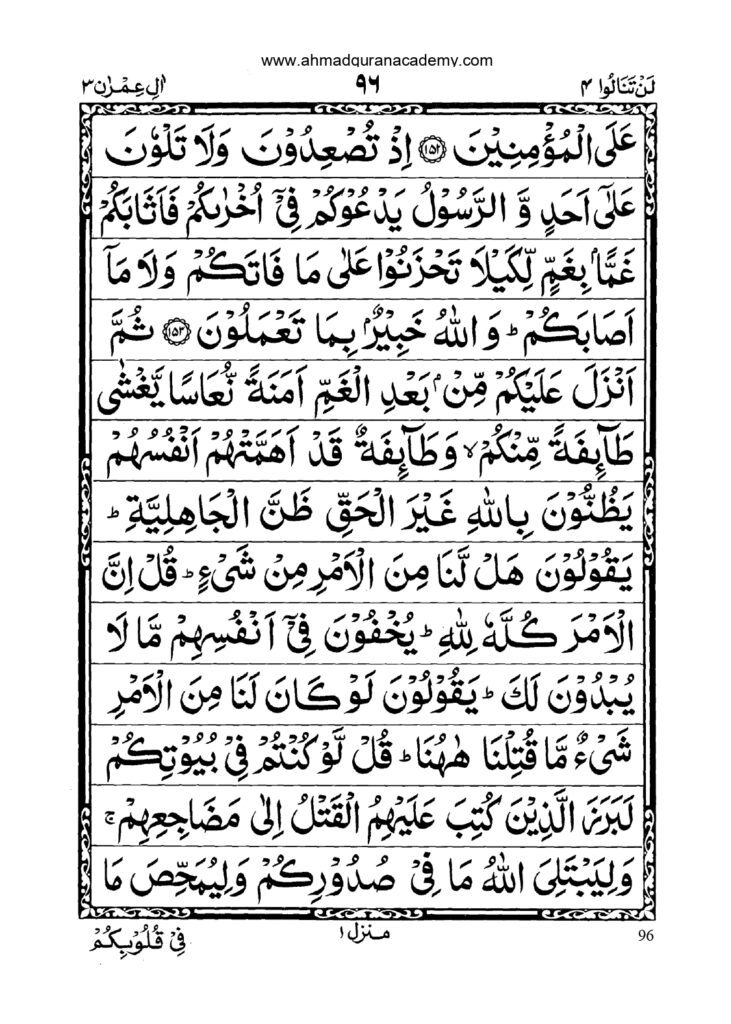 www.ahmadquranacademy.com
لَنْ تَنَالُوا ٤
٩٦
اٰلِ عِمْرٰن ٣
عَلَى الْمُؤْمِنِيْنَ ﴿۱۵۲﴾ اِذْ تُصْعِدُوْنَ وَلَا تَلْوٗنَ
عَلٰٓى اَحَدٍ وَّ الرَّسُوْلُ يَدْعُوْكُمْ فِيْٓ اُخْرٰىكُمْ فَاَثَابَكُمْ
غَمًّۢا بِغَمٍّ لِّكَيْلَا تَحْزَنُوْا عَلٰى مَا فَاتَكُمْ وَلَا مَآ
اَصَابَكُمْ ؕ وَ اللّٰهُ خَبِيْرٌۢ بِمَا تَعْمَلُوْنَ ﴿۱۵۳﴾ ثُمَّ
اَنْزَلَ عَلَيْكُمْ مِّنْۢ بَعْدِ الْغَمِّ اَمَنَةً نُّعَاسًا يَّغْشٰى
طَآىِٕفَةً مِّنْكُمْ ۙ وَطَآىِٕفَةٌ قَدْ اَهَمَّتْهُمْ اَنْفُسُهُمْ
يَظُنُّوْنَ بِاللّٰهِ غَيْرَ الْحَقِّ ظَنَّ الْجَاهِلِيَّةِ ؕ
يَقُوْلُوْنَ هَلْ لَّنَا مِنَ الْاَمْرِ مِنْ شَيْءٍ ؕ قُلْ اِنَّ
الْاَمْرَ كُلَّهٗ لِلّٰهِ ؕ يُخْفُوْنَ فِيْٓ اَنْفُسِهِمْ مَّا لَا
يُبْدُوْنَ لَكَ ؕ يَقُوْلُوْنَ لَوْ كَانَ لَنَا مِنَ الْاَمْرِ
شَيْءٌ مَّا قُتِلْنَا هٰهُنَا ؕ قُلْ لَّوْ كُنْتُمْ فِيْ بُيُوْتِكُمْ
لَبَرَزَ الَّذِيْنَ كُتِبَ عَلَيْهِمُ الْقَتْلُ اِلٰى مَضَاجِعِهِمْ ۚ
وَلِيَبْتَلِيَ اللّٰهُ مَا فِيْ صُدُوْرِكُمْ وَلِيُمَحِّصَ مَا
96
منزل ١
فِيْ قُلُوْبِكُمْ